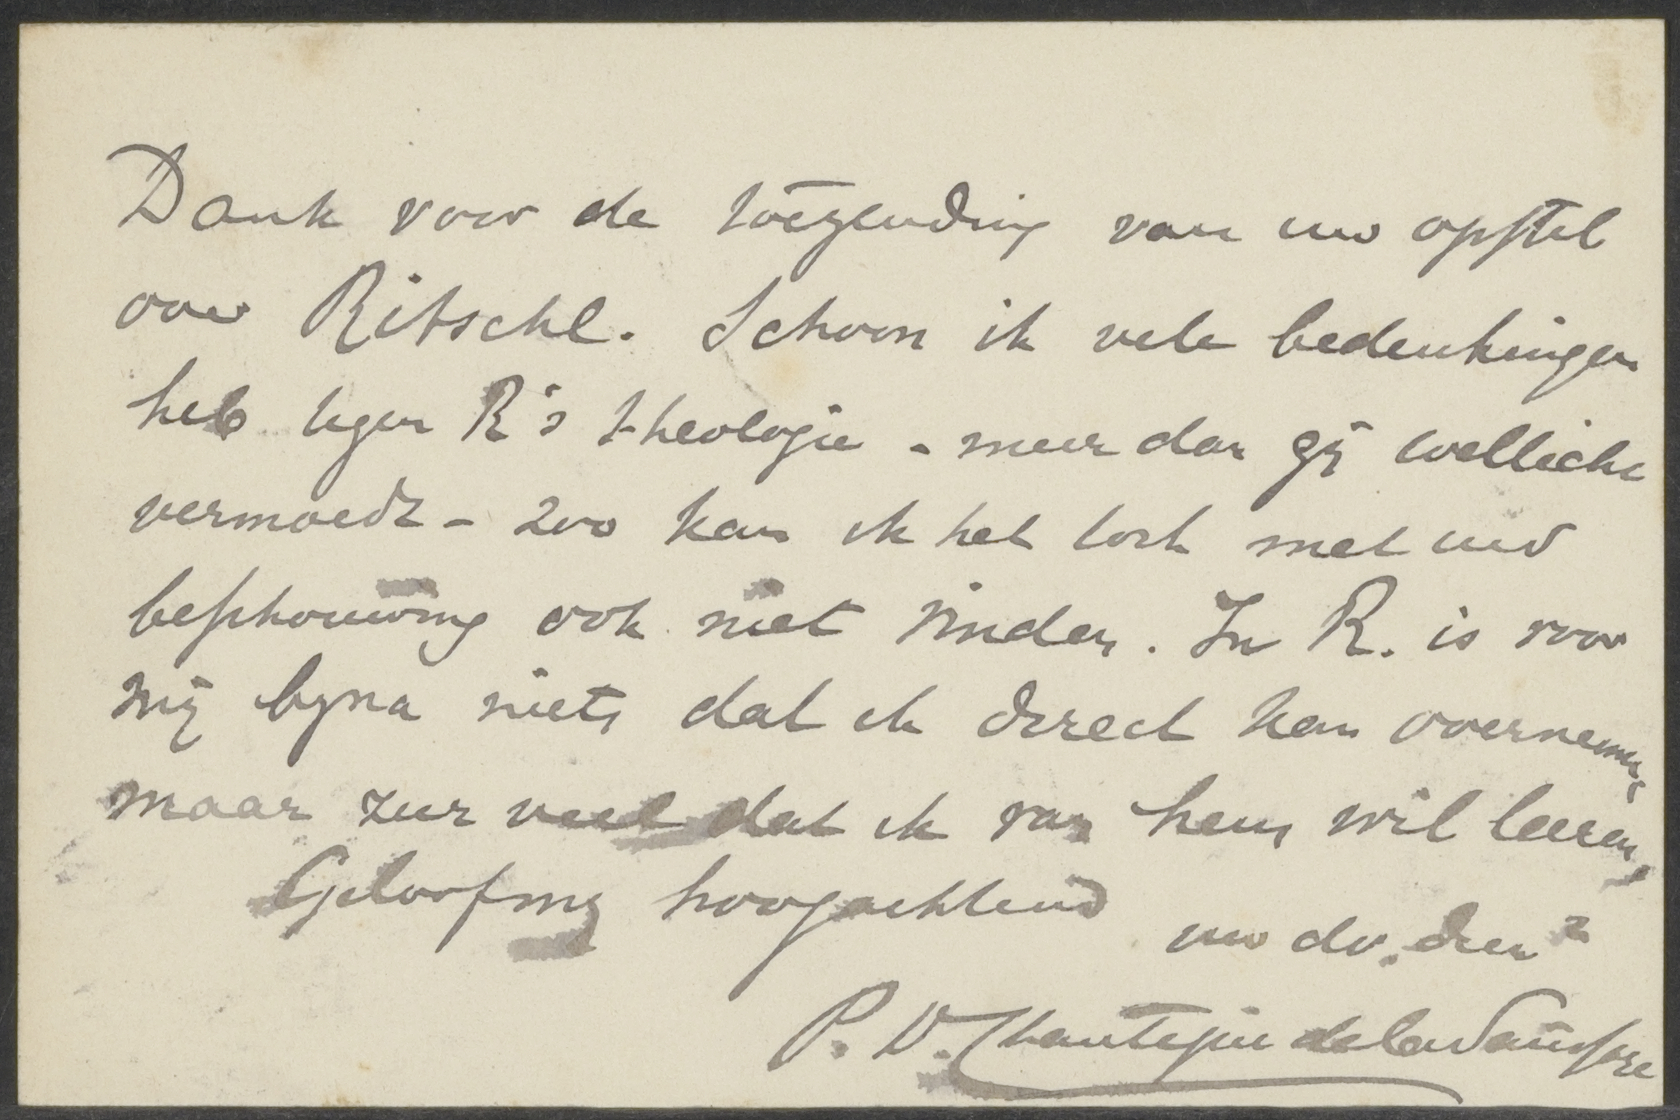 Dank voor de toezending van uw opstel
over Ritschl. Schoon ik vele bedenkingen
heb tegen R's theologie - meer dan gij wellicht
vermoedt - zoo kan ik het toch met uw
beschouwing ook niet vinden. In R. is voor
mij byna niets dat ik direct kan overnemen,
maar zeer veel dat ik van hem wil leeren.
Geloof my hoogachtend
uw dv. dienr
P. D. Chantepie de la Saussaye